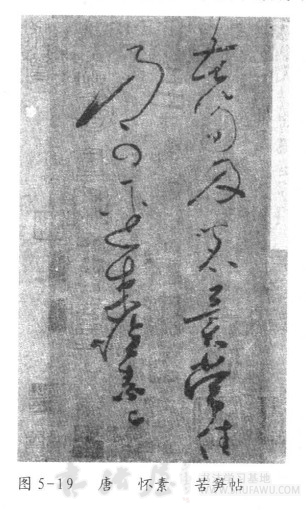 苦笋及茗异常佳
乃可径来怀素上
图5-19 唐 怀素 苦笋帖
书法学习基地
WWW.SHUFAWU.COM